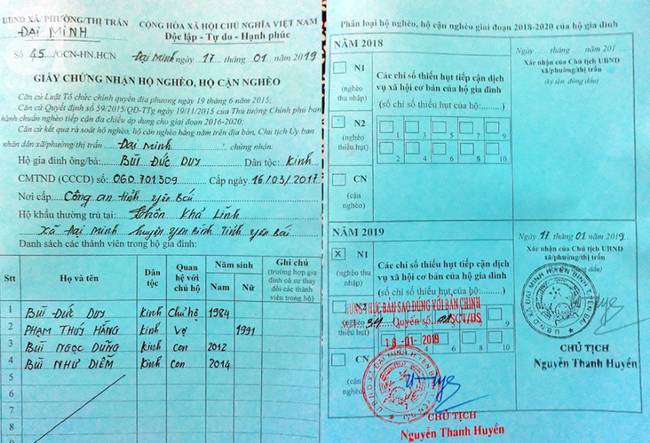 UBND XÃ/PHƯỜNG/THỊ TRẤN
ĐẠI MINH
Số 45 /GCN-HN.HCN
CỘNG HÒA XÃ HỘI CHỦ NGHĨA VIỆT NAM
Độc lập - Tự do - Hạnh phúc
Đại Minh ngày 17 tháng 01 năm 2019
GIẤY CHỨNG NHẬN HỘ NGHÈO, HỘ CẬN NGHÈO
Căn cứ Luật Tổ chức chính quyền địa phương ngày 19 tháng 6 năm 2015;
Căn cứ Quyết định số 59/2015/QĐ-TTg ngày 19/11/2015 của Thủ tướng Chính phủ ban
hành chuẩn nghèo tiếp cận đa chiều áp dụng cho giai đoạn 2016-2020;
Căn cứ kết quả rà soát hộ nghèo, hộ cận nghèo hằng năm trên địa bàn, Chủ tịch Ủy ban
nhân dân xã/phường/thị trấn Đại Minh chứng nhận.
Hộ gia đình ông/bà: BÙI ĐỨC DUY Dân tộc: Kinh
CMTND (CCCD) số: 060.701309 Cấp ngày 16/03/2017
Nơi cấp Công an tỉnh Yên Bái
Hộ khẩu thường trú tại: Thôn Khả Lĩnh
Xã Đại Minh huyện Yên Bình Tỉnh Yên Bái
Danh sách các thành viên trong hộ gia đình:
Stt Họ và tên Dân tộc Quan hệ với chủ hộ Năm sinh Nam Nữ Ghi chú (trường hợp gia đình có sự thay đổi các thành viên trong hộ)
1 BÙI ĐỨC DUY Kinh Chủ hộ 1984
2 PHẠM THUÝ HẰNG Kinh Vợ 1991
3 BÙI NGỌC DŨNG Kinh Con 2012
4 BÙI NHƯ DIỄM Kinh Con 2014
5
6
7
8
Phân loại hộ nghèo, hộ cận nghèo giai đoạn 2018-2020 của hộ gia đình
NĂM 2018
N1
(nghèo thu nhập)
N2
(nghèo thiếu hụt)
CN
(cận nghèo)
Các chỉ số thiếu hụt tiếp cận dịch
vụ xã hội cơ bản của hộ gia đình
(số chỉ số thiếu hụt của hộ:......)
1 3 5 7 9
2 4 6 8 10
Ngày tháng năm 201
Xác nhận của Chủ tịch UBND
xã/phường/thị trấn
(ký tên, đóng dấu)
NĂM 2019
X N1
(nghèo thu nhập)
(nghèo thiếu hụt)
CN
(cận nghèo)
Các chỉ số thiếu hụt tiếp cận dịch
vụ xã hội cơ bản của hộ gia đình
CHỨNG THỰC BẢN SAO ĐÚNG VỚI BẢN CHÍNH
Quyển số
18 -01- 2019
9
10
CHỦ TỊCH
Nguyễn Thanh Huyền
Ngày 17 tháng 01 năm 2019
Xác nhận của Chủ tịch UBND
xã/phường/thị trấn
U.B.N.D XÃ ĐẠI MINH HUYỆN YÊN BÌNH
CHỦ TỊCH
Nguyễn Thanh Huyền